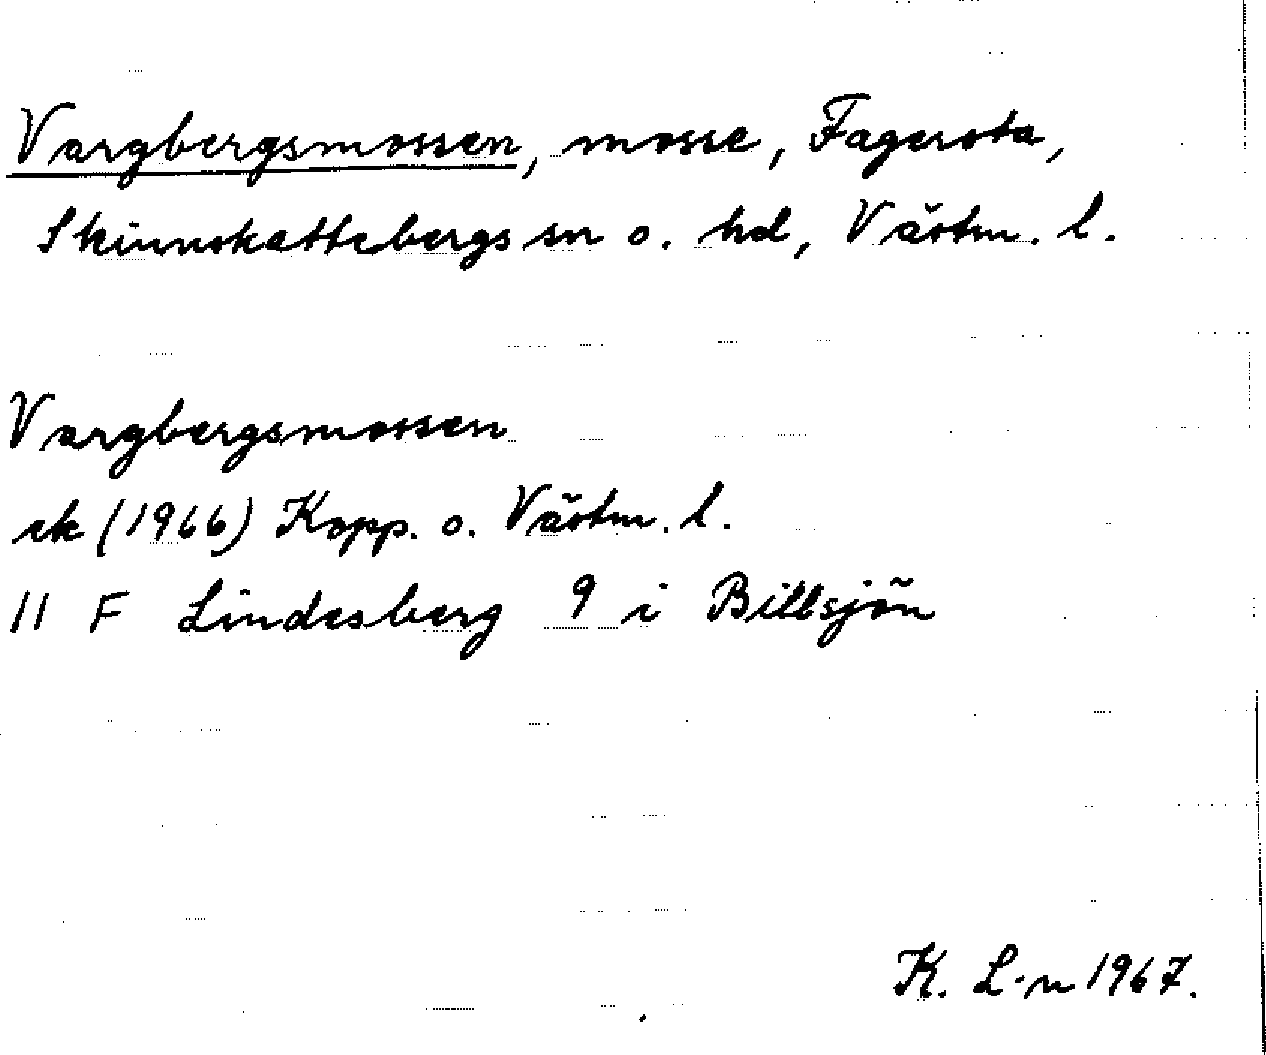 Vargbergsmossen, mosse, Fagersta,
Skinnskattebergs sn o. hd, Västm. l.
Vargbergsmossen
ek (1966) Kopp. o. Västm. l.
11 F Lindesberg 9 i Billsjön
K. L-n 1967.